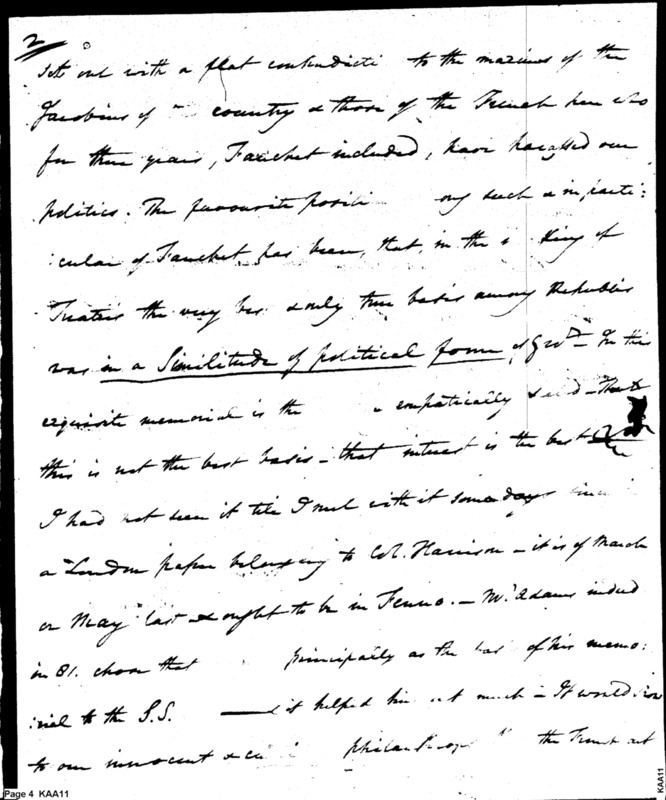 2
Sets out with a flat contradicti to the maxims of the
Jacobins of country & those of the French here who
for three years, Fauchet included, have harassed our
politics. The favourite positi ong such & in parti:
:cular of Fauchet has been, that, in the King of
Treaties the very bes & only true basis among Republics
was in a Similitude of political form of Gov.t – In this
exquisite memorial is the emphatically said – that
this is not the best basis – that interest is the best
I had not seen it till I met with it some days since
a London paper belonging to Col. Harrison – it is of March
or May last & ought to be in Fenno. – Mr. Adams indeed
in 81. chose that principally as the bas of his memo:
:rial to the S.S. it helped him not much – It would
to our innocent & philanthrop the Trust act
Page 4 KAA11
KAA11